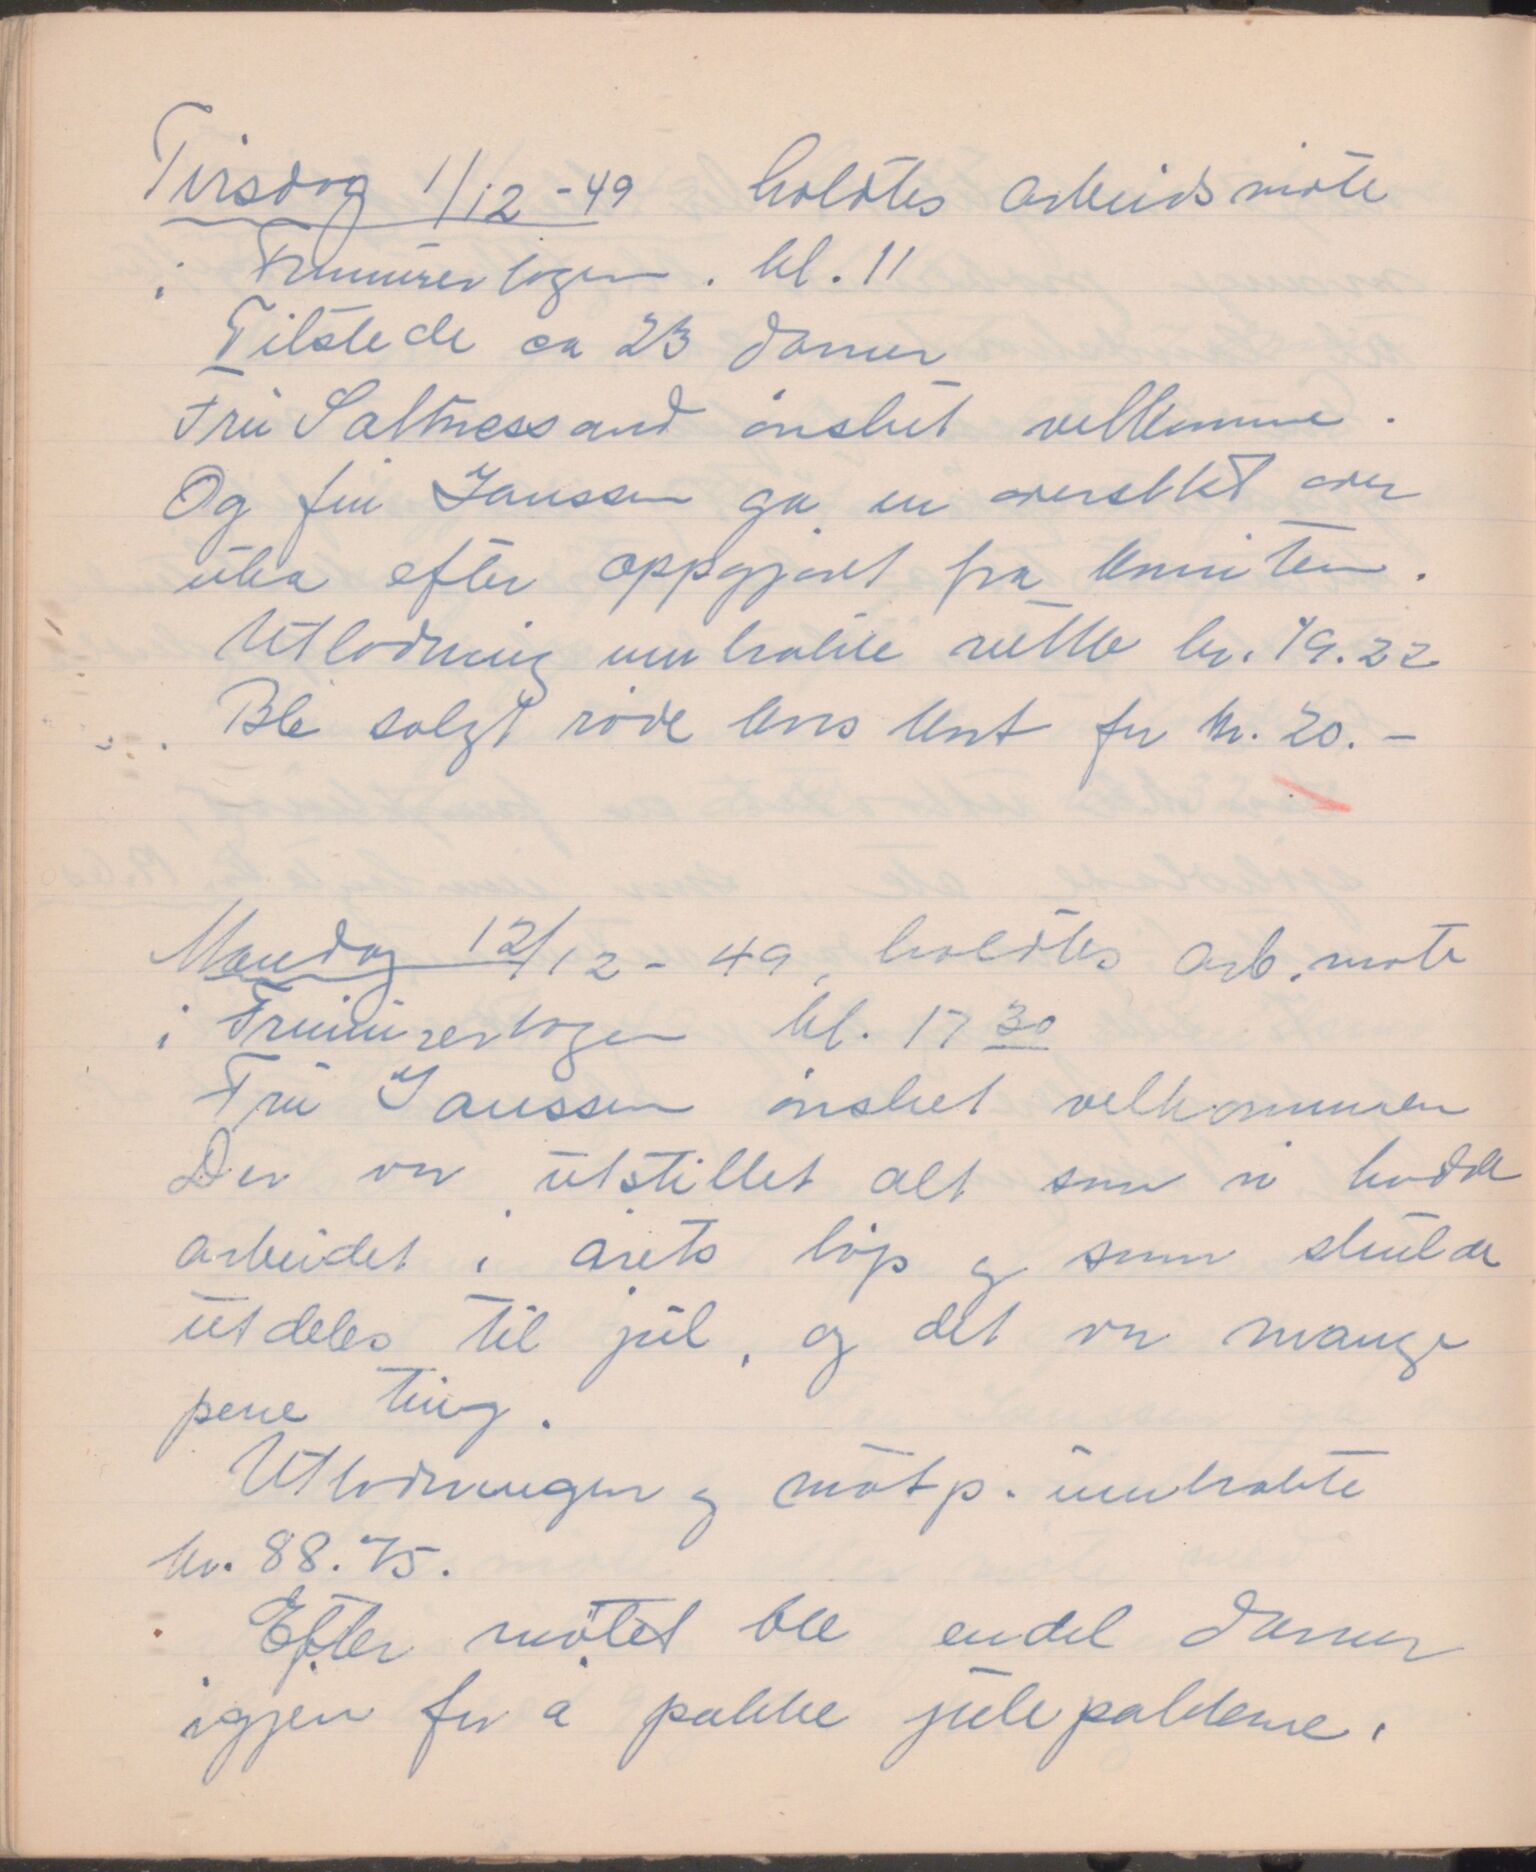 Tirsdag 1/12 -49 holdtes arbeidsmøte
i Frimurerlogen. kl. 11
Tilstede ca 23 damer
Fru Saltnessand ønsket velkomme.
Og fru Janssen ga en oversikt over
uka efter oppgjøret fra komiteen.
Utlodning innbrakte netto kr. 19.22
Ble solgt røde kors kort for kr. 20.-
Mandag 12/12 - 49, holdtes arb. møte
i Frimurerlogen kl. 17 30
Fru Janssen ønsket velkommen
Der var utstillet alt som vi hadde
arbeidet i årets løp og som skulde
utdeles til jul, og det var mange
pene ting.
Utlodningen og møtp. innbrakte
kr. 88.75.
Efter møtet ble endel damer
igjen for å pakke julepakkene.